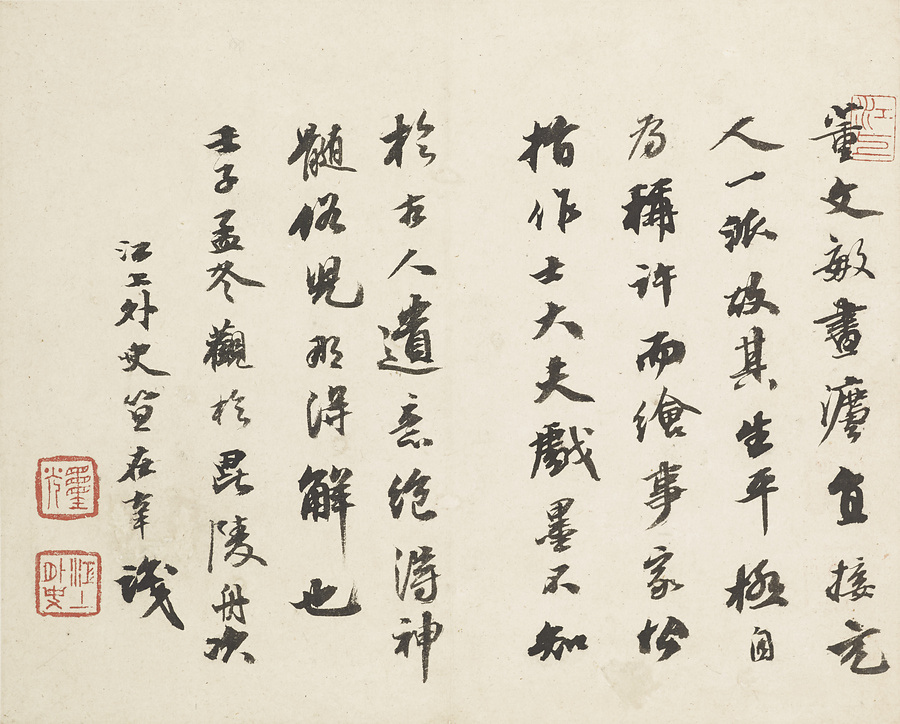 董文敏畫灋直接元
人一派故其生平極自
為稱許而繪事家
指作士大夫戲墨不知
於古人遺意絕得神
髓俗兒那得解也
壬子孟冬觀於毘陵舟次
江上外史笪在辛識
重光
江上外史